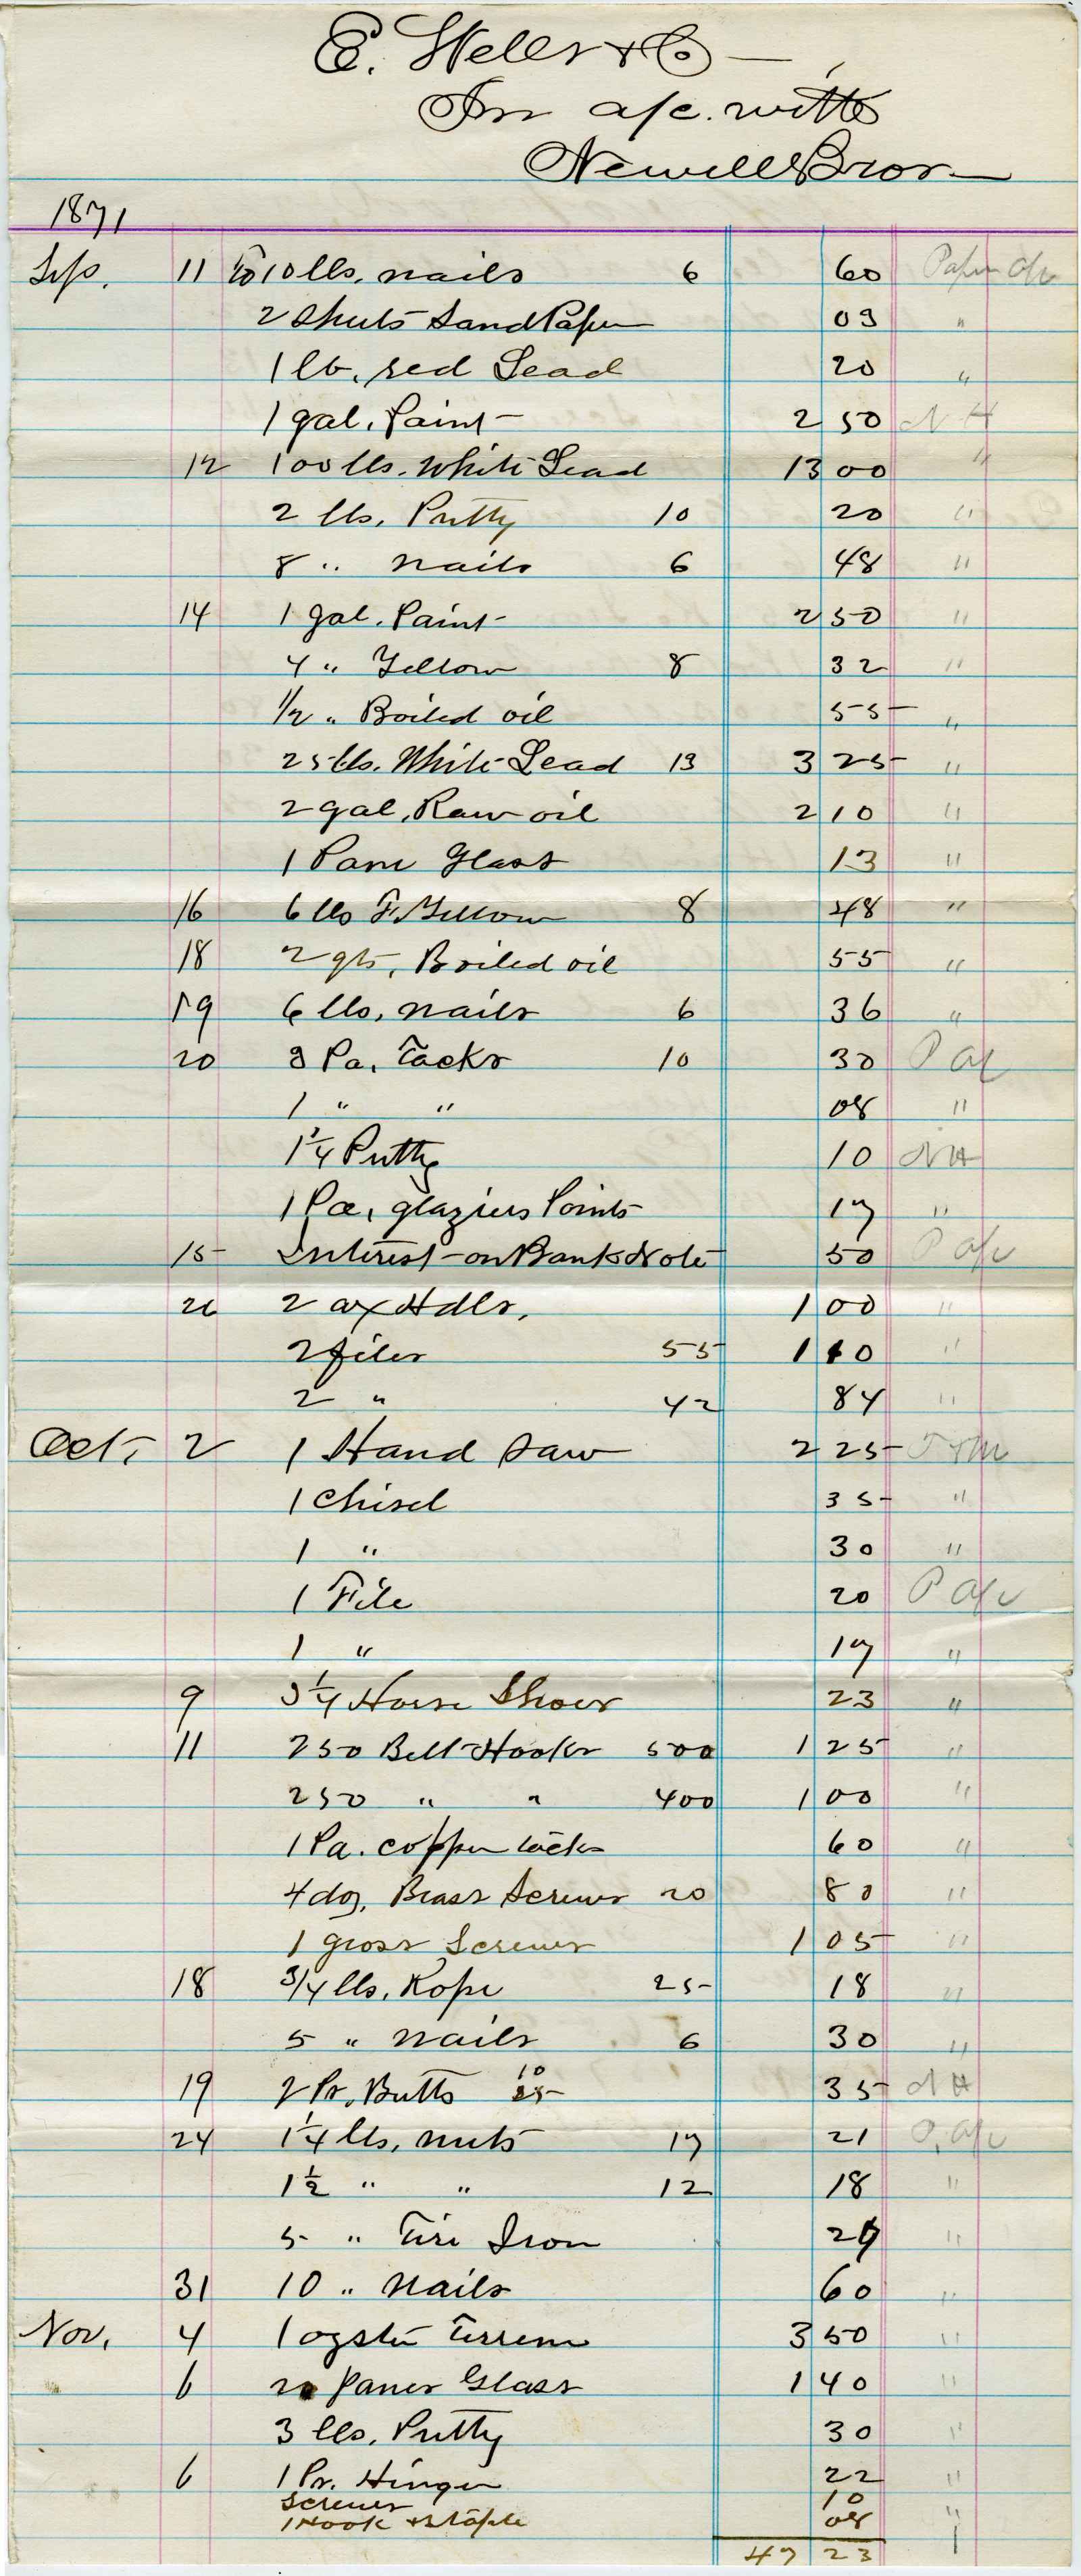 E. Wells & Co
In a/c. with
Newell Bros
1871
Sep. 11 To 10 lbs. nails 6 60 Paper a/c
2 Sheets Sand Paper 03 "
1 lb. red Lead 20 "
1 gal. Paint 2 50 N H
12 100 lbs. White Lead 13 00 "
2 lbs. Putty 10 20 "
8 " nails 6 48 "
14 1 gal. Paint 2 50 "
4 " Yellow 8 32 "
1/2 " Boiled oil 55 "
25 lbs. White Lead 13 3 25 "
2 gal. Raw oil 2 10 "
1 Pane Glass 13 "
16 6 lbs F. Yellow 8 48 "
18 2 qts. Boiled oil 55 "
19 6 lbs. nails 6 36 "
20 3 Pa. Tacks 10 30 P a/c
1 " " 08 "
1 1/4 Putty 10 N H
1 Pa. glaziers Points 17 "
15 Interest on Bank Note 50 P a/c
26 2 ax Hdls. 1 00 "
2 files 55 1 10 "
2 " 42 84 "
Oct. 2 1 Hand Saw 2 25
1 Chisel 35 "
1 " 30 "
1 File 20 P a/c
1 " 17 "
9 3 1/4 Horse Shoes 23 "
11 250 Belt Hooks 500 1 25 "
250 " " 400 1 00 "
1 Pa. copper tacks 60 "
4 doz. Brass Screws 20 80 "
1 gross Screws 1 05 "
18 3/4 lbs. Rope 25 18 "
5 " nails 6 30 "
19 2 Pr. Butts 10 25 35 N H
24 1 1/4 lbs. nuts 17 21 P. a/c
1 1/2 " " 12 18 "
5 " Tire Iron 29 "
31 10 " Nails 60 "
Nov. 4 1 oyster Terreen 3 50 "
6 20 Panes Glass 1 40 "
3 lbs. Putty 30 "
6 1 Pr. Hinges 22 "
Screws 10
1 Hook & Staple 08 "
47 23